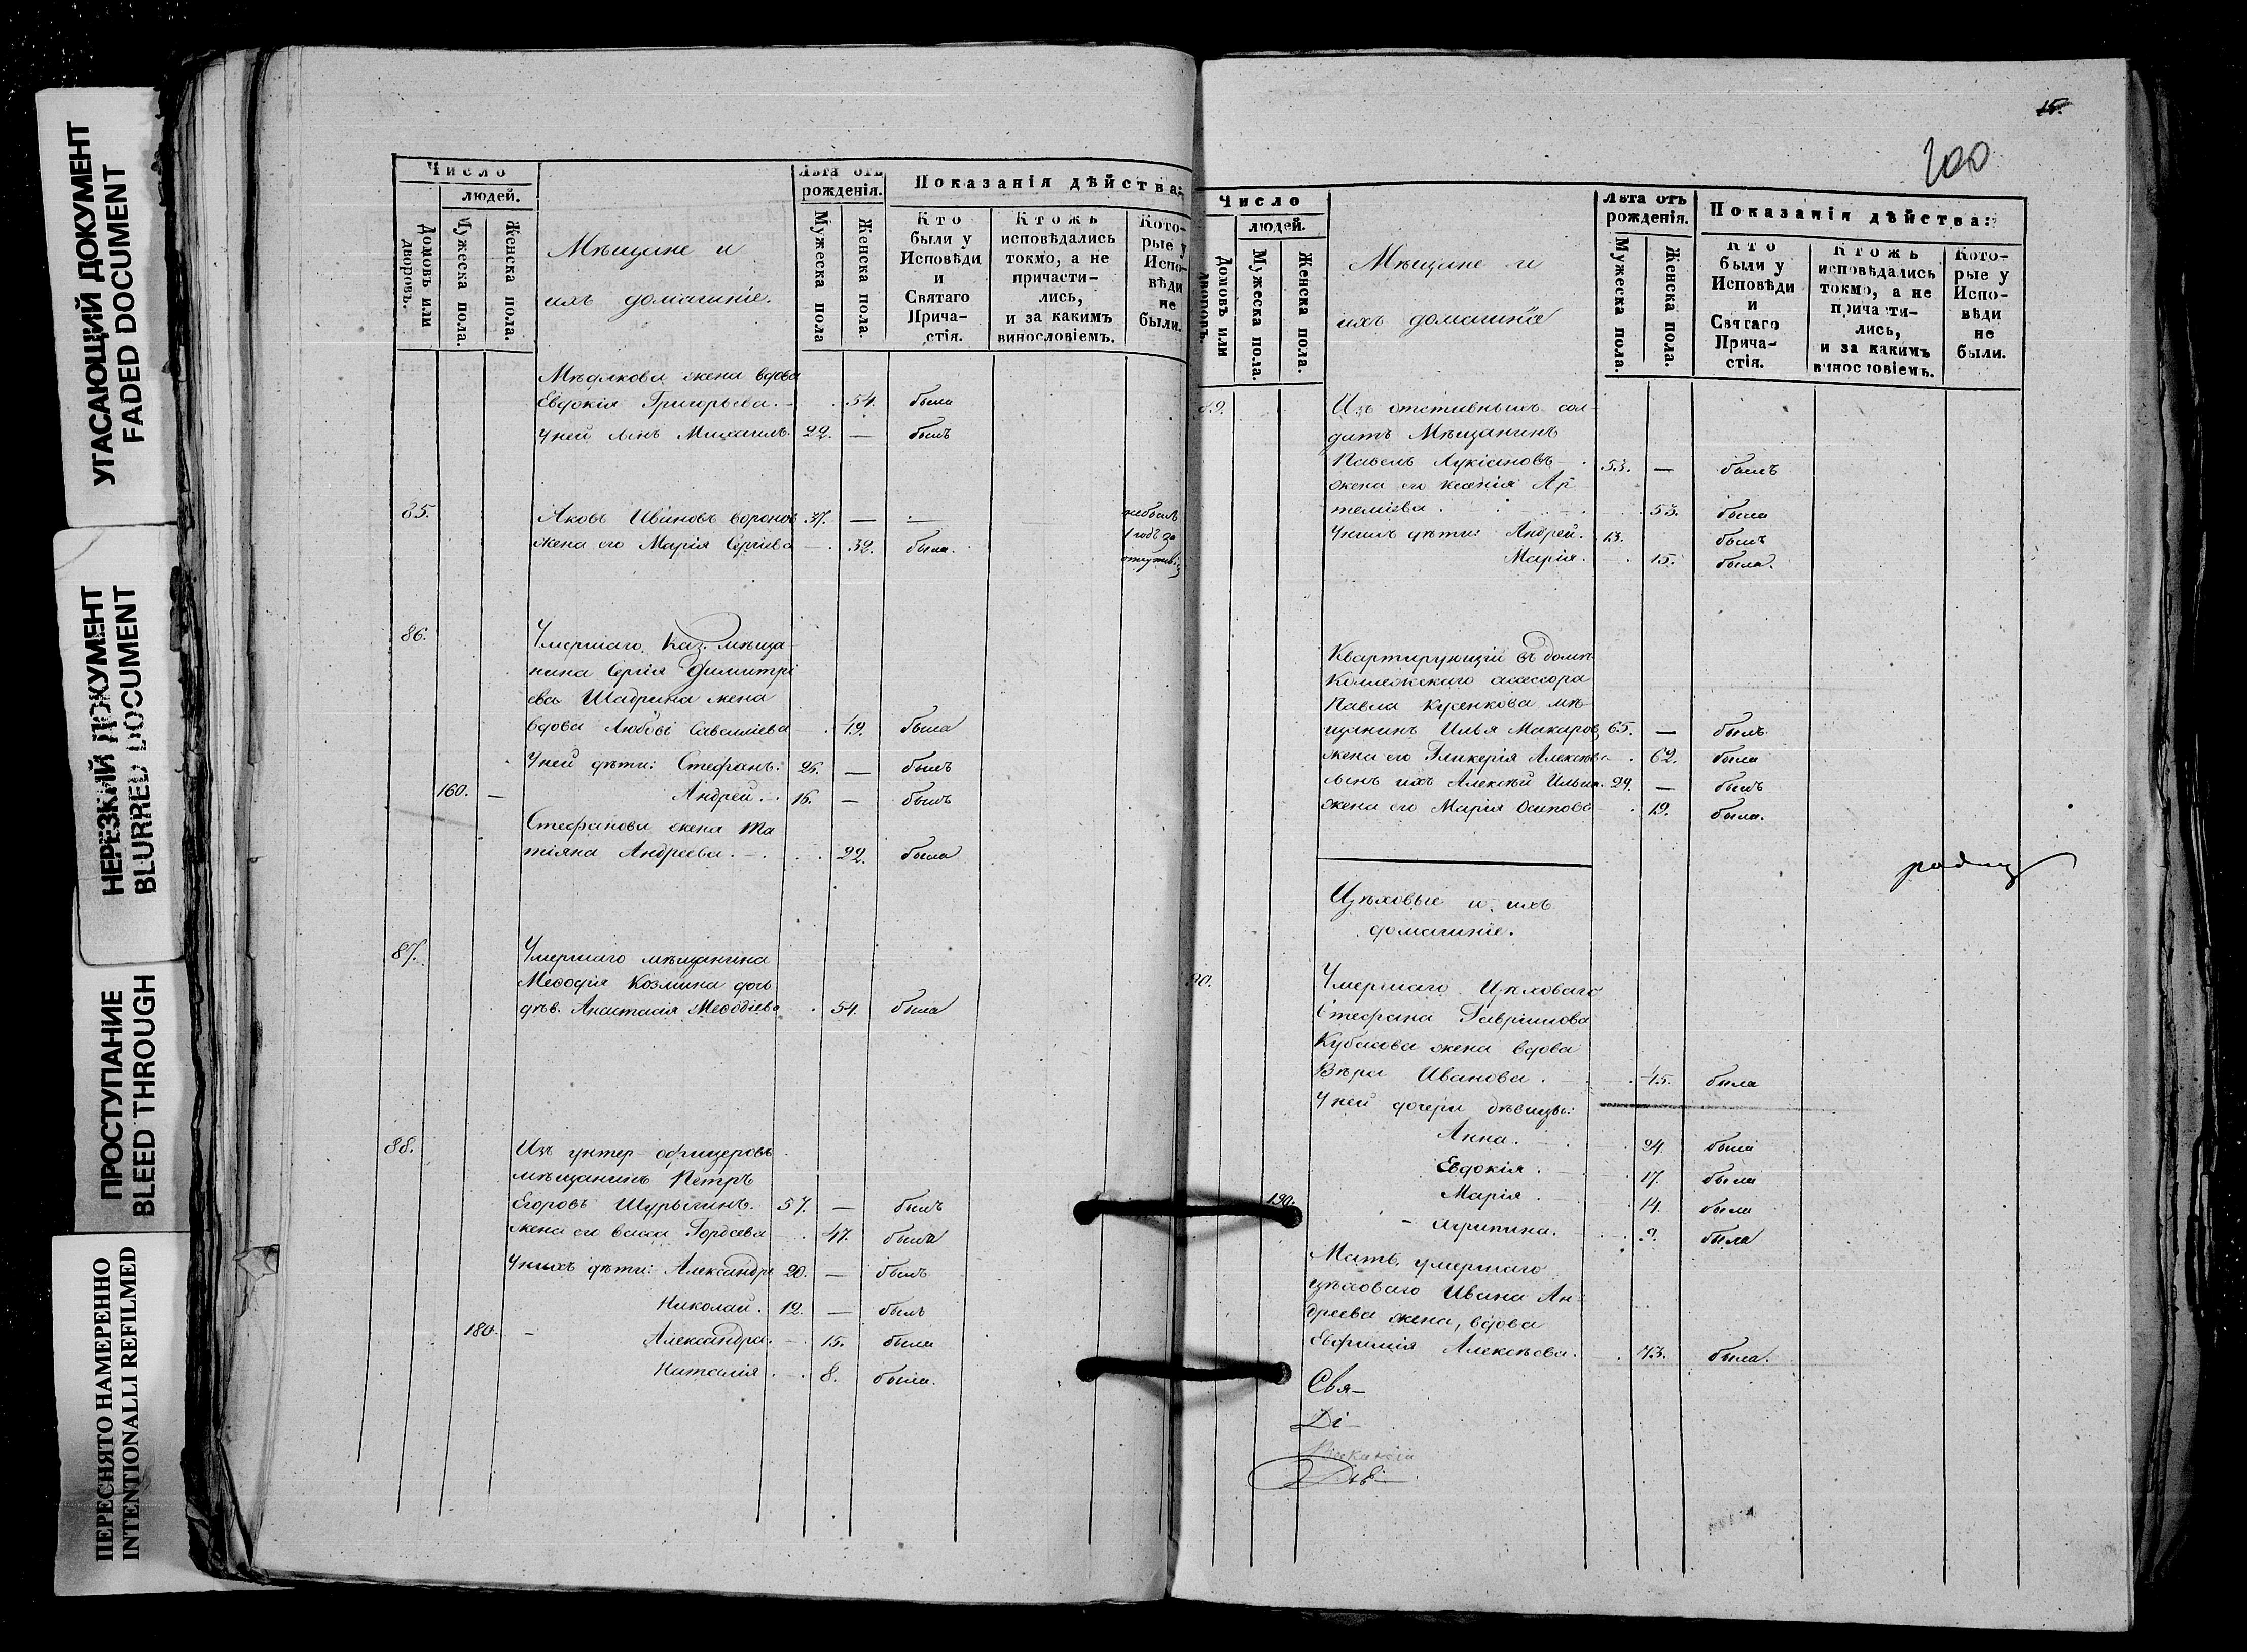 УГАСАЮЩИЙ ДОКУМЕНТ
FADED DOCUMENT
НЕРЕЗКИЙ ДОКУМЕНТ
BLURRED DOCUMENT
ПРОСТУПАНИЕ
BLEED THROUGH
ПЕРЕСНЯТО НАМЕРЕННО
INTENTIONALLI REFILMED
Число
людей.
Домовъ или дворовъ.
Мужеска пола.
Женска пола.
Мѣщане и
ихъ домашніе.
Лѣта отъ рожденія.
Мужеска пола
Женска пола.
Показанія дѣйства:
Кто были у Исповѣди и Святаго Прича-стія.
Ктожъ исповѣдались токмо, а не причасти-лись, и за какимъ винословіемъ.
Кото-рые у Испо-вѣди не были.
жена вдова
Евдокія Григорьева. 54. была
У ней сынъ Михаилъ. 22. — былъ
85. Яковъ Ивановъ Вороновъ 37. — — не былъ
жена его Марія Сергіева — 32. была. 1 годъ за
86. Умершаго Каз. мѣща
нина Сергія Димитрі
ева Шадрина жена
вдова Любовь Савелліева 49. была
У ней дѣти: Стефанъ. 26. — былъ
160. — Андрей. 16. — былъ
Стефанова жена Та
тіяна Андреева. 22. была
87. Умершаго мѣщанина
Меѳодія Козмина дочь
дѣв. Анастасія Меѳодіева 54. была
88. Изъ унтер-офицеровъ
мѣщанинъ Петръ
Егоровъ Шурыгинъ. 57. — былъ
жена его Васса Гордѣева 47. была
У нихъ дѣти: Александръ 20. — былъ
Николай. 12. — былъ
180. — Александра. 15. была
Наталія 8. была.
15.
200
Число
людей.
Домовъ или дворовъ.
Мужеска пола.
Женска пола.
Мѣщане и
ихъ домашніе
Лѣта отъ рожденія.
Мужеска пола.
Женска пола.
Показанія дѣйства:
Кто были у Исповѣди и Святаго Прича-стія.
Ктожъ исповѣдались токмо, а не причасти-лись, и за какимъ винословіемъ.
Кото-рые у Испо-вѣди не были.
89. Изъ отставныхъ сол-
датъ Мѣщанинъ
Павелъ Лукіановъ 53. — былъ
жена его Ксенія Ар
теміева. 53. была
У нихъ дѣти: Андрей. 13. былъ
Марія. 15. была.
Квартирующій въ домѣ
Коллежскаго асессора
Павла Кусенкова мѣ-
щанинъ Илья Макаровъ 65. — былъ
жена его Гликерія Алексѣева 62. была
сынъ ихъ Алексѣй Ильинъ 24. — былъ
жена его Марія Осипова 19. была.
Цѣховые и ихъ
домашніе.
90. Умершаго Цѣховаго
Стефана Гавриилова
Кубасова жена вдова
Вѣра Иванова. 45. была
У ней дочери дѣвицы:
Анна. 24. была
Евдокія. 17. была
190. Марія. 14. была
Агрипина. 9. была
Мать, умершаго
цѣховаго Ивана Ан-
дреева жена, вдова
Евфимія Алексѣева. 73. была.
Свя-
Ді-